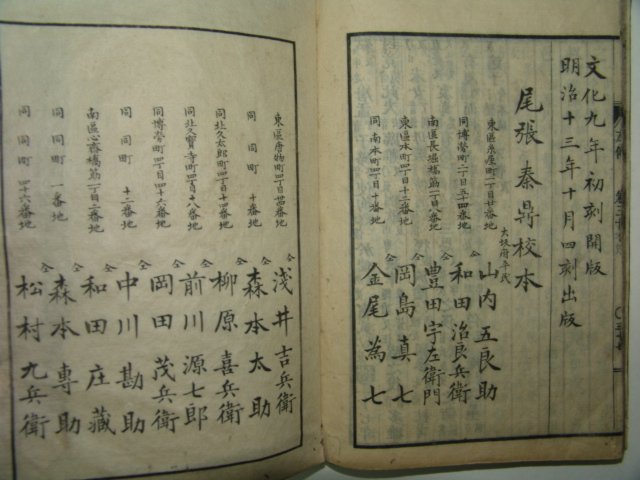 文化九年初刻開版
明治十三年十月四刻出版
尾張 秦鼎校本
大坂府平民
山内五良助
同博勞町四丁目二番地
和田治良兵衛
南區長堀橋筋二丁目二番地
豊田宇左衛門
東區本町四丁目二番地
岡島真七
同南本町四丁目一番地
金尾為七
浅井吉兵衛
同 同町 十番地
森本太助
同北久太郎町四丁目十四番地
柳原喜兵衛
同北久寶寺町四丁目十八番地
前川源七郎
同博勞町四丁目四十六番地
岡田茂兵衛
同 同町 十二番地
中川勘助
南區心齋橋筋一丁目二番地
和田庄藏
同 同町 一番地
森本專助
同 同町 四十六番地
松村九兵衛